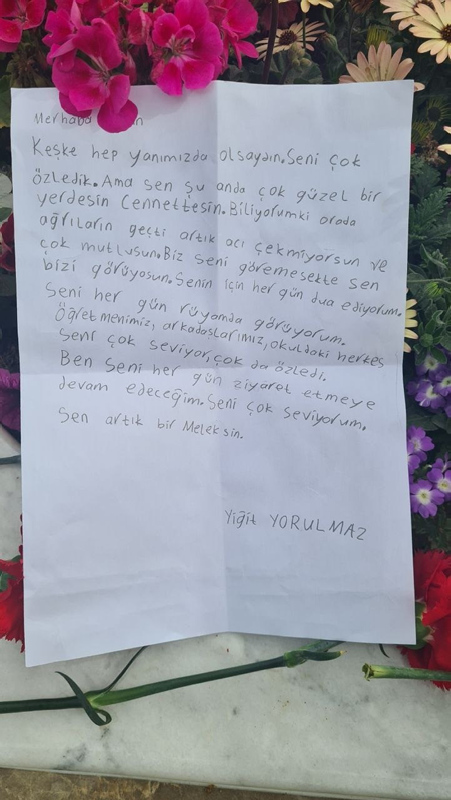 Merhaba
Keşke hep yanımızda olsaydın. Seni çok
özledik. Ama sen şu anda çok güzel bir
yerdesin Cennettesin. Biliyorumki orada
ağrıların geçti artık acı çekmiyorsun ve
çok mutlusun. Biz seni göremesekte sen
bizi görüyosun. Senin için her gün dua ediyorum.
Seni her gün rüyamda görüyorum.
Öğretmenimiz, arkadaşlarımız, okuldaki herkes
seni çok seviyor, çok da özledi.
Ben seni her gün ziyaret etmeye
devam edeceğim. Seni çok seviyorum.
Sen artık bir Meleksin.
Yiğit YORULMAZ